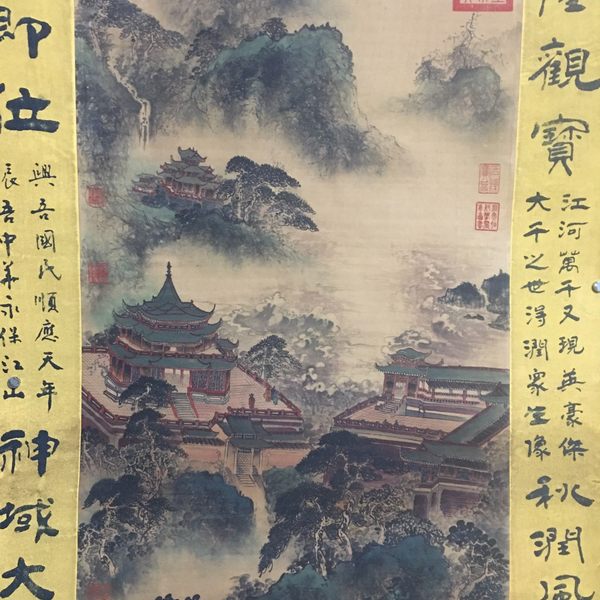 觀寶
江河萬千又現英豪傑
大千之世得潤眾生像
秋潤風
即位
興吾國民順應天年
辰吾中華永保江山
神域大